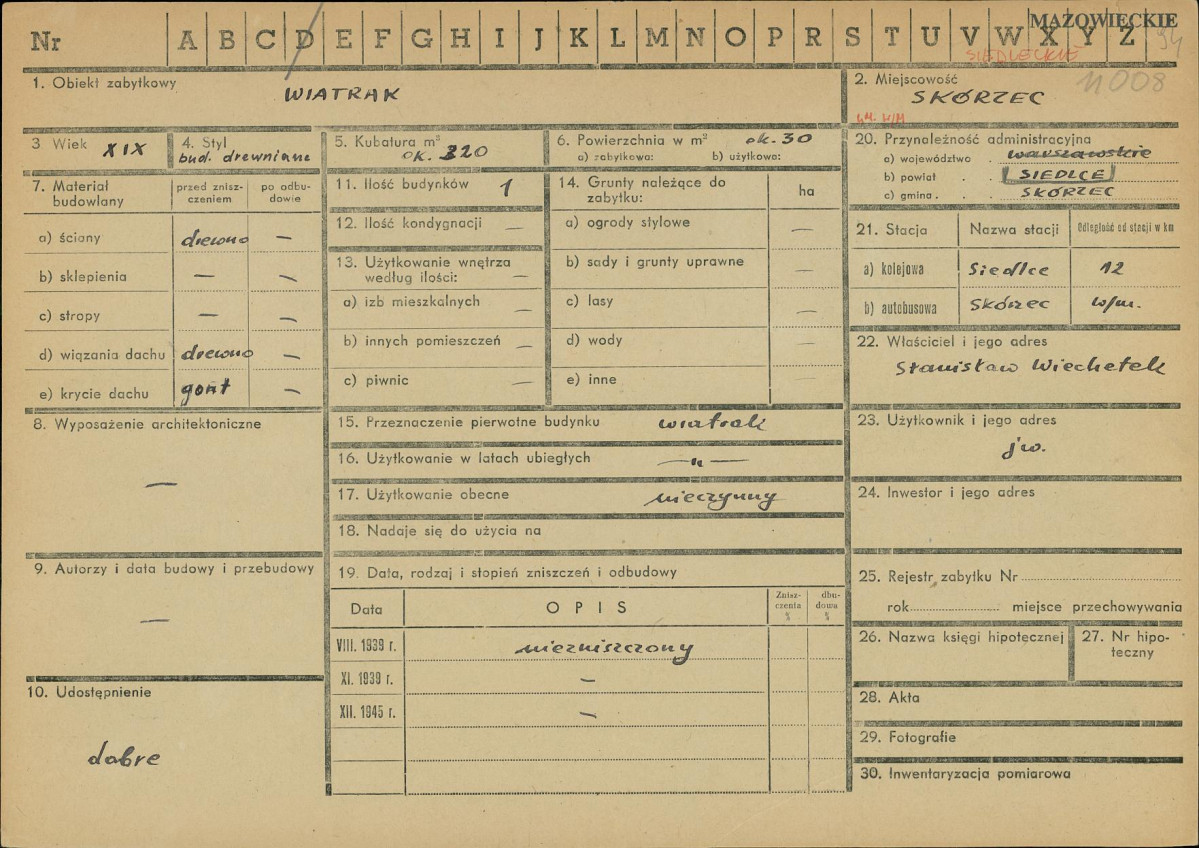 Nr A B C D E F G H I J K L M N O P R S T U V W X Y Z
MAZOWIECKIE
SIEDLECKIE
94
1. Obiekt zabytkowy
WIATRAK
2. Miejscowość
11008
SKÓRZEC
3 Wiek XIX
4. Styl
bud. drewniane
5. Kubatura m³
ok. 320
6. Powierzchnia w m² ok. 30
a) zabytkowa: b) użytkowa:
20. Przynależność administracyjna
a) województwo warszawskie
b) powiat SIEDLCE
c) gmina SKÓRZEC
7. Materiał budowlany
przed zniszczeniem
po odbudowie
a) ściany drewno —
b) sklepienia — —
c) stropy — —
d) wiązania dachu drewno —
e) krycie dachu gont —
11. Ilość budynków 1
12. Ilość kondygnacji —
13. Użytkowanie wnętrza
według ilości: —
a) izb mieszkalnych —
b) innych pomieszczeń —
c) piwnic —
14. Grunty należące do
zabytku:
ha
a) ogrody stylowe —
b) sady i grunty uprawne —
c) lasy —
d) wody —
e) inne —
21. Stacja Nazwa stacji Odległość od stacji w km
a) kolejowa Siedlce 12
b) autobusowa Skórzec w/m.
22. Właściciel i jego adres
Stanisław Wiechetek
8. Wyposażenie architektoniczne
—
15. Przeznaczenie pierwotne budynku wiatrak
16. Użytkowanie w latach ubiegłych —"—
17. Użytkowanie obecne nieczynny
18. Nadaje się do użycia na
23. Użytkownik i jego adres
jw.
24. Inwestor i jego adres
9. Autorzy i data budowy i przebudowy
—
19. Data, rodzaj i stopień zniszczeń i odbudowy
Data OPIS Znisz-
czenia
%
dbu-
dowa
%
VIII. 1939 r. niezniszczony
XI. 1939 r. —
XII. 1945 r. —
25. Rejestr zabytku Nr
rok miejsce przechowywania
26. Nazwa księgi hipotecznej
27. Nr hipo-
teczny
10. Udostępnienie
dobre
28. Akta
29. Fotografie
30. Inwentaryzacja pomiarowa